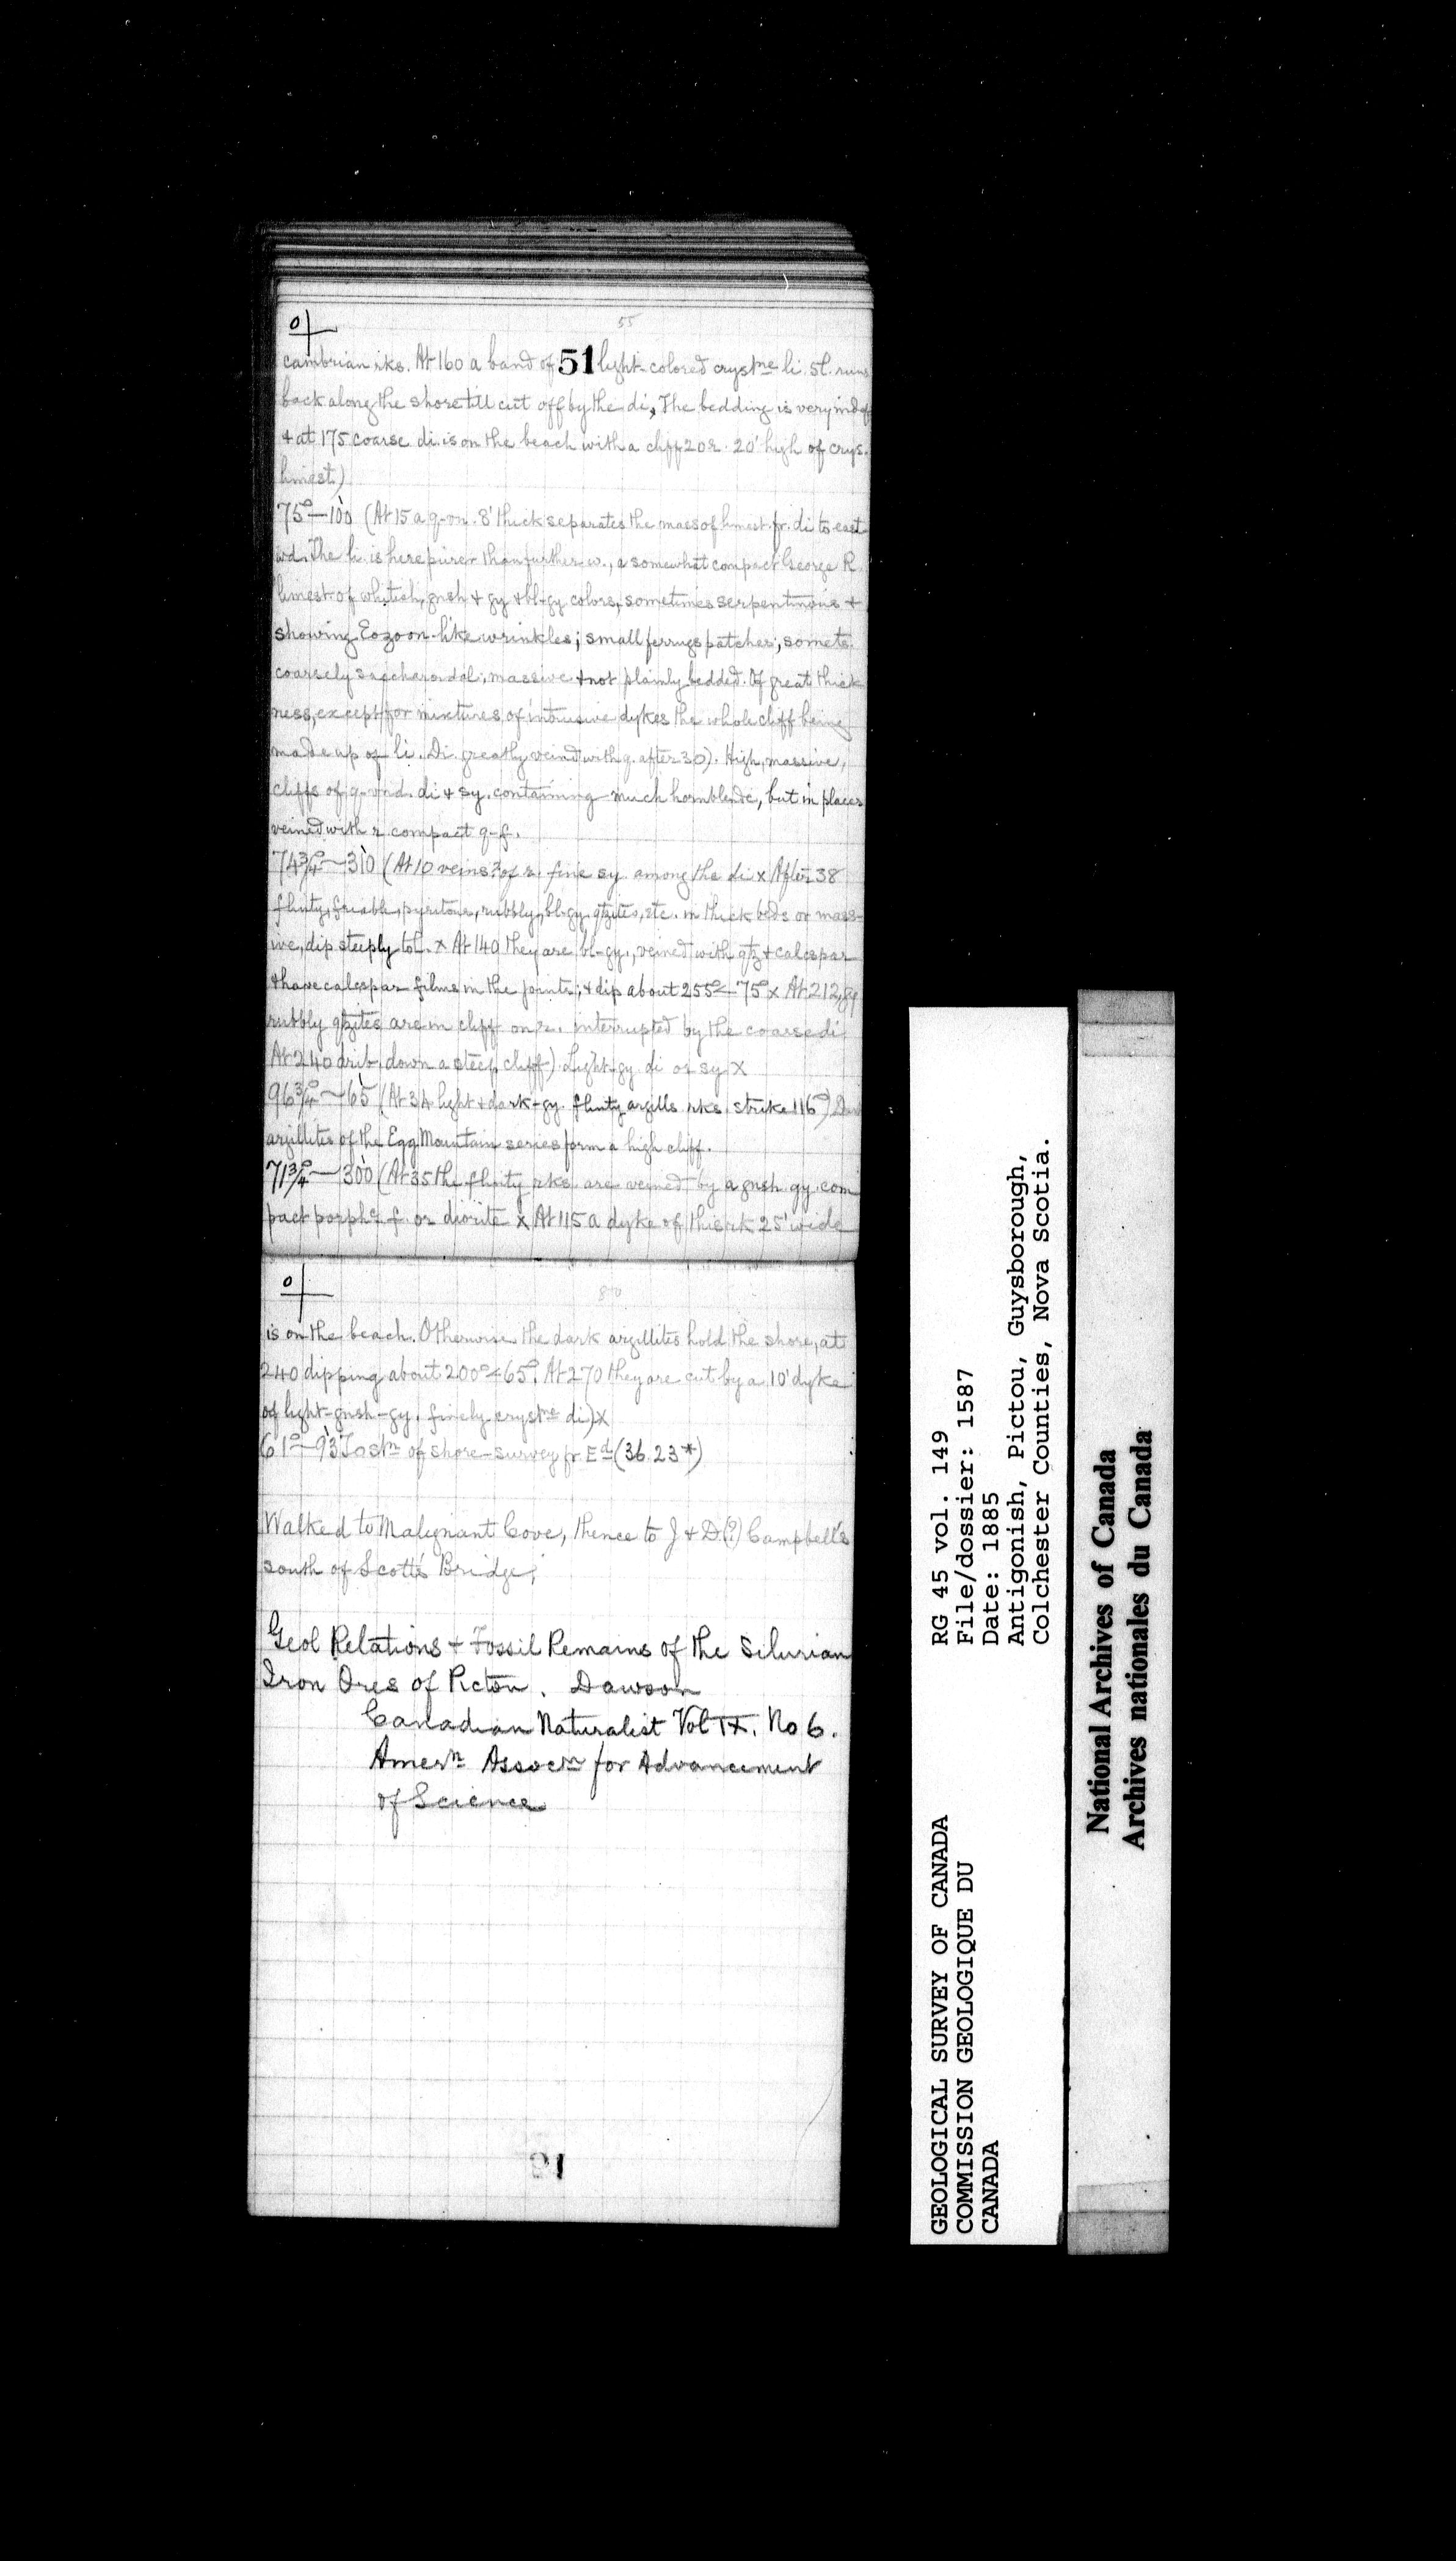 55
51
cambrian rks. At 160 a band of light-colored crystne li. st. runs
back along the shore till cut off by the di. The bedding is very indef
& at 175 coarse di. is on the beach with a cliff 20 r. 20' high of crys.
limest.)
75°—100 (At 15 a q-vn. 8' thick separates the mass of limest. fr. di to east
wd. The li. is here purer than further w., a somewhat compact George R.
limest. of whitish, gnsh & gy & bl-gy colors, sometimes serpentinous &
showing Eozoon-like wrinkles; small ferrugs patches; somets.
coarsely saccharoidal, massive & not plainly bedded. Of great thick
ness, except for mixtures of intrusive dykes the whole cliff being
made up of li. Di. greatly veined with q. after 30). High, massive,
cliffs of q-vnd. di & sy. containing much hornblende, but in places
veined with r. compact q-f.
74¾°—310 (At 10 veins? of r. fine sy. among the di x After 38
flinty, friable, pyritous, rubbly, bl-gy. qtzites, etc. in thick beds or mass-
ive, dip steeply to l. x At 140 they are bl-gy., veined with qtz & calcspar
& have calcspar films in the joints; & dip about 255°<75° x At 212, gy
rubbly qtzites are in cliff on r. interrupted by the coarse di
At 240 drib. down a steep cliff) Light-gy di or sy X
96¾°—65 (At 34 light & dark-gy. flinty argills rks. strike 116°) Dark
argillites of the Egg Mountain series form a high cliff.
71¾°—300 (At 35 the flinty rks are veined by a gnsh gy. com
pact porphc f. or diorite x At 115 a dyke of this rk 25' wide
80
is on the beach. Otherwise the dark argillites hold the shore, at
240 dipping about 200°<65°. At 270 they are cut by a 10' dyke
of light-gnsh-gy. finely crystne di) x
61°—93 To stn of shore-survey fr Ed (36.23*)
Walked to Malignant Cove, thence to J & D.(?) Campbell's
south of Scott's Bridge;
Geol Relations & Fossil Remains of the Silurian
Iron Ores of Pictou. Dawson
Canadian Naturalist Vol IX. No 6.
Amern Assocn for Advancement
of Science
GEOLOGICAL SURVEY OF CANADA
COMMISSION GEOLOGIQUE DU
CANADA
RG 45 vol. 149
File/dossier: 1587
Date: 1885
Antigonish, Pictou, Guysborough,
Colchester Counties, Nova Scotia.
National Archives of Canada
Archives nationales du Canada